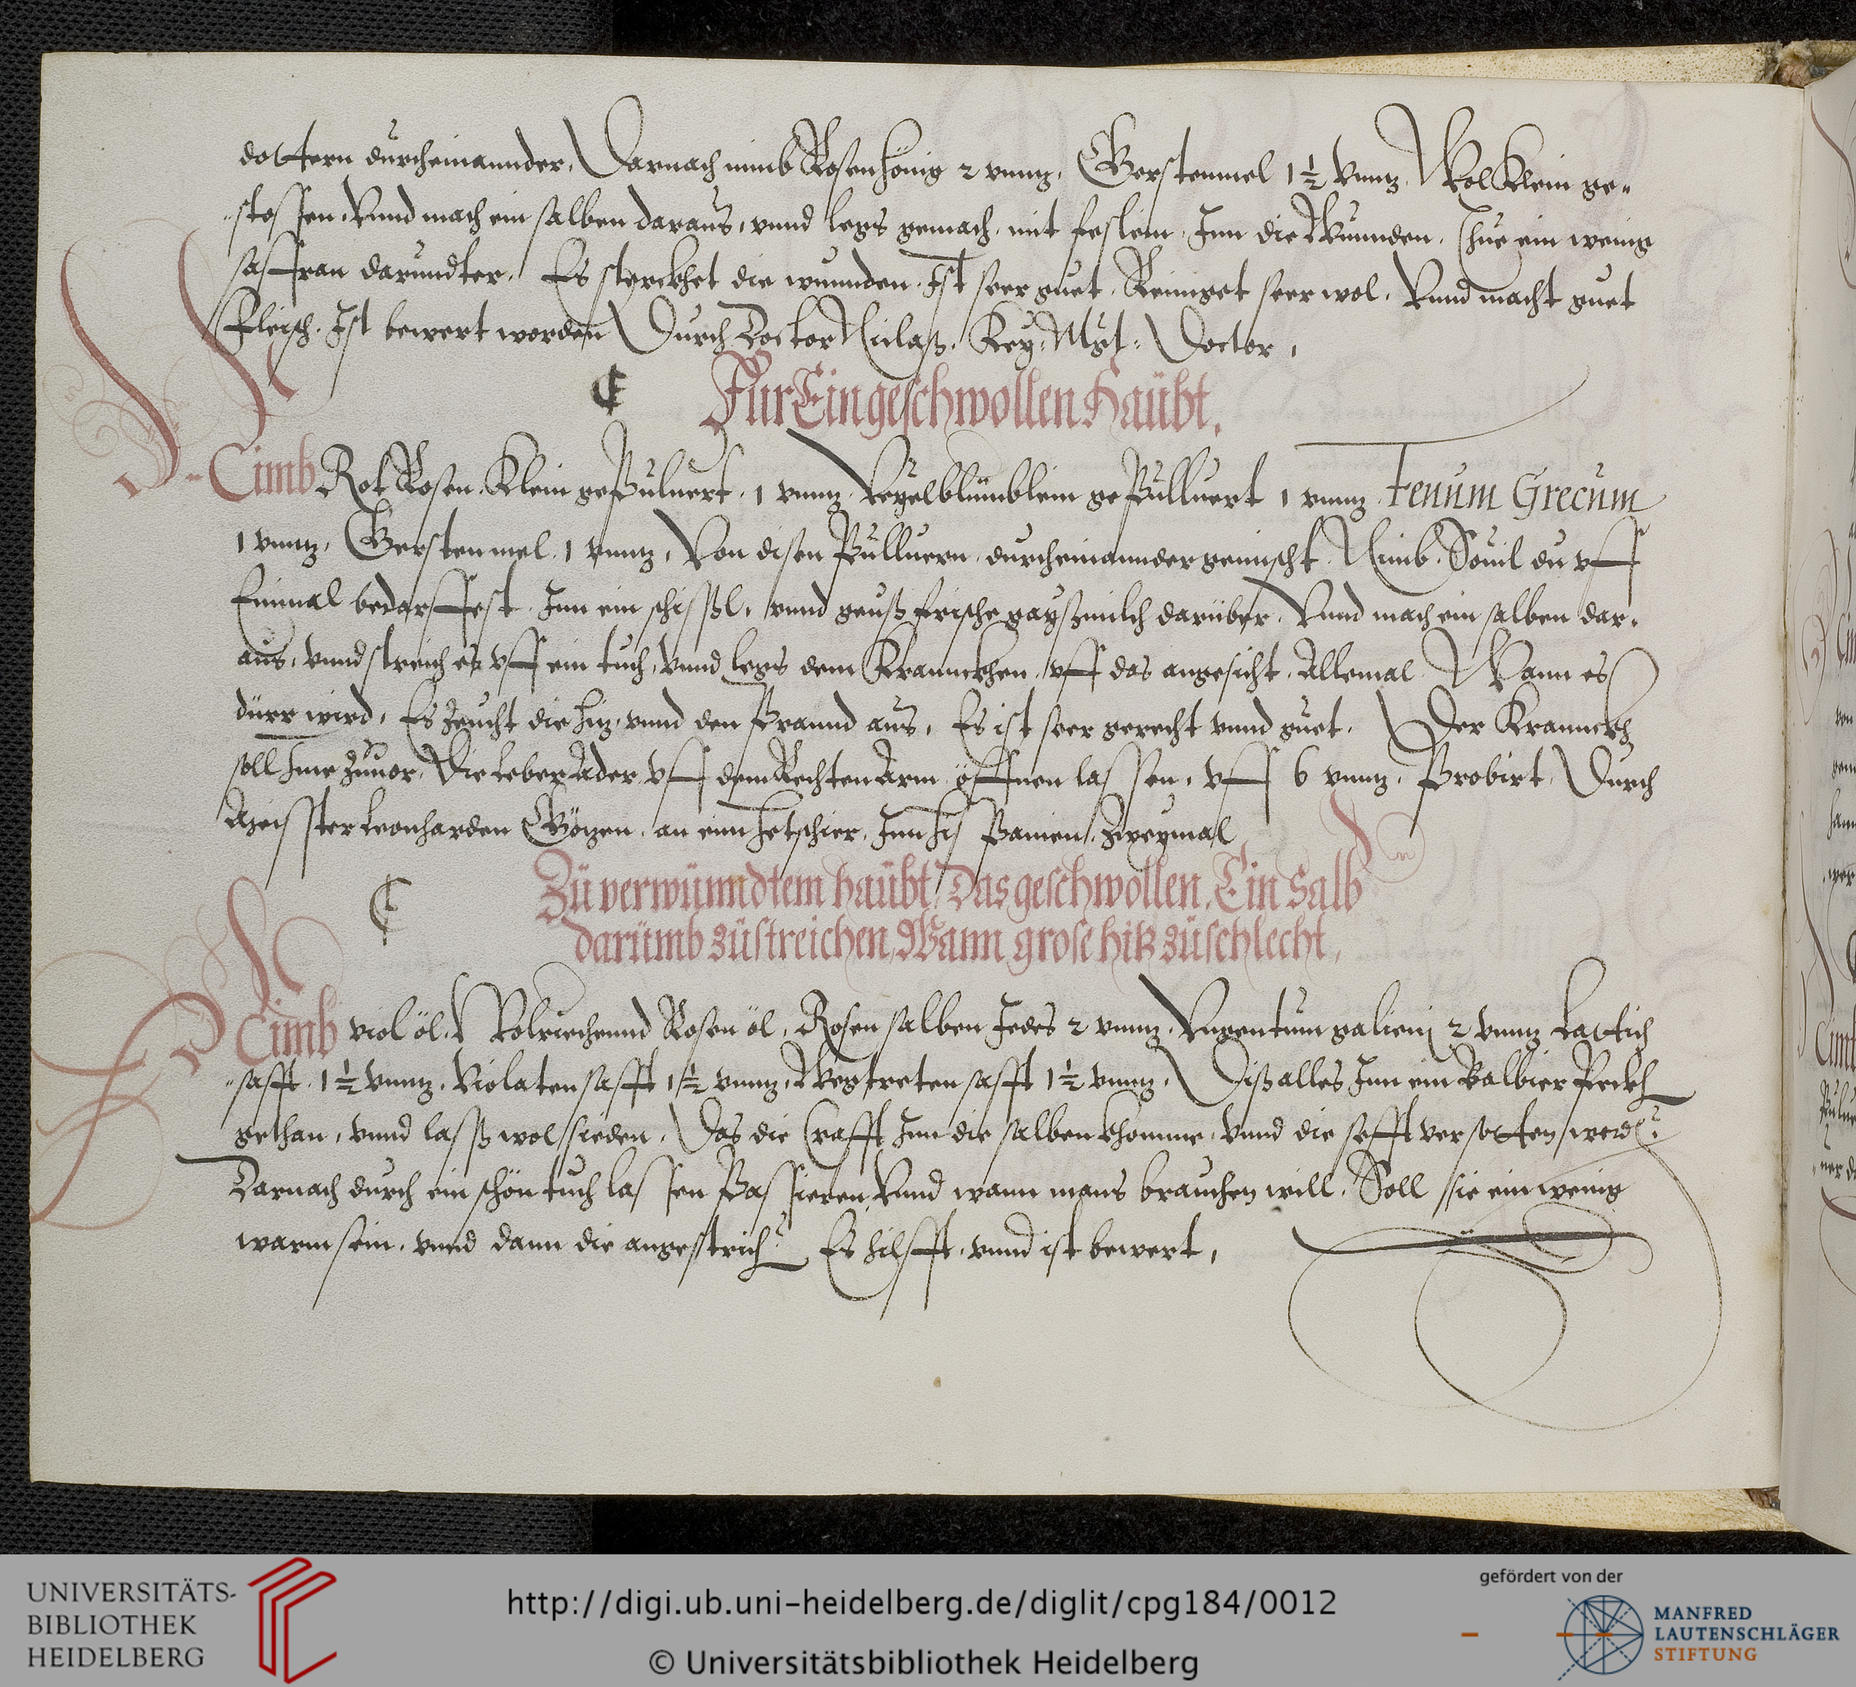 dottern durcheinannder, Darnach nimb Rosenhönig 2 vnntz, Gerstenmel 1 ½ vnntz, Wol klein ge„
„stossen, Vnnd mach ein salben daraus, vnnd legs gemach, mit feslein, Inn die Wunnden, Thue ein wenig
saffran darundter, Es sterckhet die wunnden, Ist seer guet, Reiniget seer wol, Vnnd macht guet
Fleisch, Ist bewert worden, Durch Doctor Niclaß, Key: Mgt: Doctor,
¶ Für Ein geschwollen Haübt,
Nimb Rot Rosen, Klein gepuluert, 1 vnntz, Veyelblümblein gepülluert 1 vnntz, Fenum Grecum
1 vnntz, Gerstenmel, 1 vnntz, Von disen Pulluern, durcheinannder gemischt, Nimb, Souil du vff
Einmal bedarffest, Inn ein schissl, vnnd geuß frische gayßmilch darüber, Vnnd mach ein salben dar,
aus, vnnd streich es vff ein tuch, vnnd legs dem Kranckhen, vff das angesicht, Allemal, Wann es
dürr wird, Es zeucht die hitz, vnnd den Prannd aus, Es ist seer gerecht vnnd guet, Der Kranckh
soll Ime zuuor, Die Leber Ader, vff dem Rechten Arm, öffnen lassen, vff 6 vnntz, Probirt, Durch
Meisster Leonharden Götzen, an einn Hetschier, Inn Hispanien, Zweymal,
¶ Zü verwünndtem haübt, Das geschwollen, Ein Salb
darümb züstreichen, Wann grose hitz züschlecht,
Nimb viol öl, Wolriechennd Rosen öl, Rosen salben Jedes 2 vnntz, Vngentum galieni 2 vnntz, Lattich
„safft, 1 ½ vnntz, Violaten safft 1 ½ vnntz, Wegtreten safft 1 ½ vnntz, Diß alles Inn ein Balbier Peckh
gethan, vnnd lasß wol sieden, Das die Crafft Inn die salben khomme, vnnd die sefft versotten werd:
Darnach durch ein schön tuch lassen Passieren, Vnnd wann mans brauchen will, Soll sie ein wenig
warm sein, vnnd dann die angestrich: Es hilfft, vnnd ist bewert,
UNIVERSITÄTS-
BIBLIOTHEK
HEIDELBERG
http://digi.ub.uni-heidelberg.de/diglit/cpg184/0012
© Universitätsbibliothek Heidelberg
gefördert von der
MANFRED
LAUTENSCHLÄGER
STIFTUNG